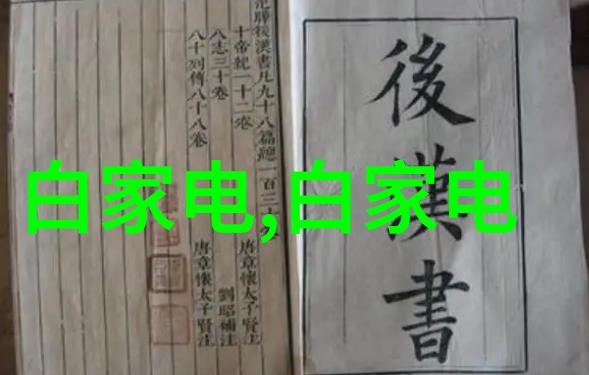 後漢書
范曄後漢書凡九十八篇總一百三十卷
十帝紀一十二卷 唐章懷太子賢注
八志三十卷 劉昭補注
八十列傳八十八卷 唐章懷太子賢注
白家电,白家电